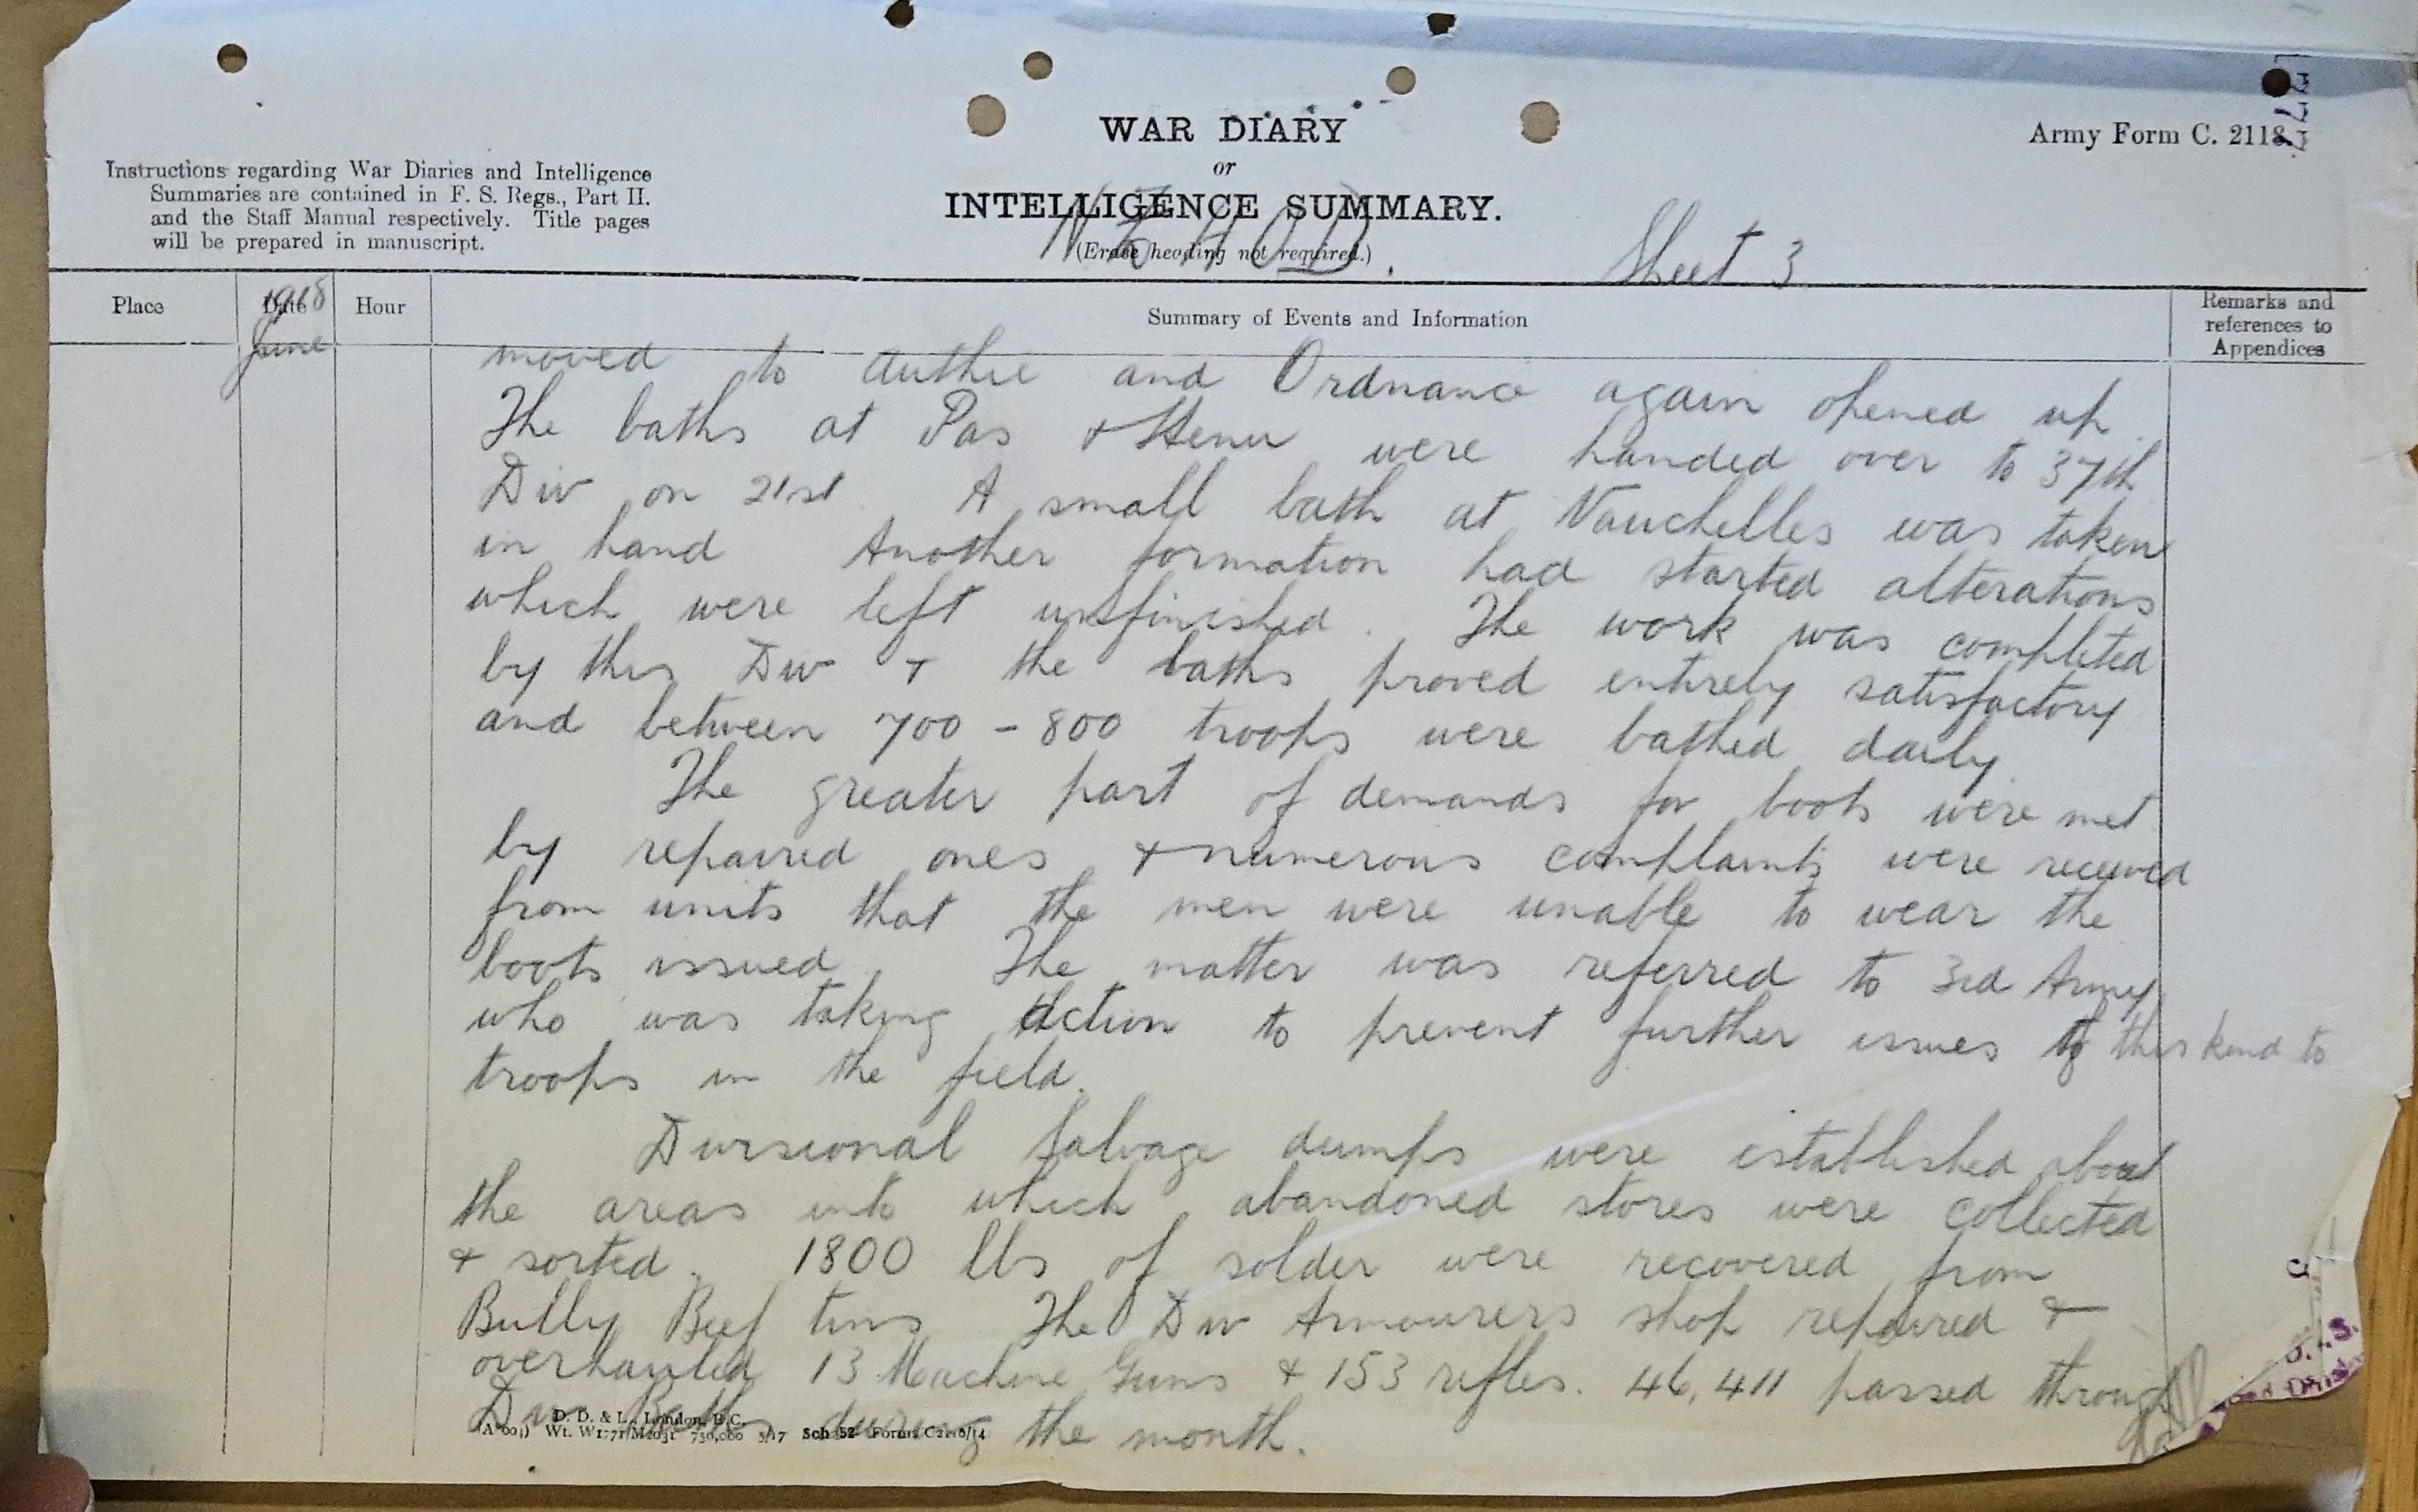 WAR DIARY
or
INTELLIGENCE SUMMARY.
(Erase heading not required.)
Army Form C. 2118.
Instructions regarding War Diaries and Intelligence
Summaries are contained in F. S. Regs., Part II.
and the Staff Manual respectively. Title pages
will be prepared in manuscript.
Sheet 3
Place
Date
Hour
Summary of Events and Information
Remarks and
references to
Appendices
1918
June
moved to Authie and Ordnance again opened up.
The baths at Pas & Henu were handed over to 37th
Div on 21st. A small bath at Vauchelles was taken
in hand Another formation had started alterations
which were left unfinished. The work was completed
by this Div & the baths proved entirely satisfactory
and between 700 - 800 troops were bathed daily.
The greater part of demands for boots were met
by repaired ones & numerous complaints were received
from units that the men were unable to wear the
boots issued. The matter was referred to 3rd Army
who was taking action to prevent further issues of this kind to
troops in the field.
Divisional Salvage dumps were established about
the areas into which abandoned stores were collected
& sorted. 1800 lbs of solder were recovered from
Bully Beef tins The Div Armourers shop repaired &
overhauled 13 Machine Guns & 153 rifles. 46,411 passed through
Div Baths during the month.
D. D. & L., London, E.C.
Sch 52